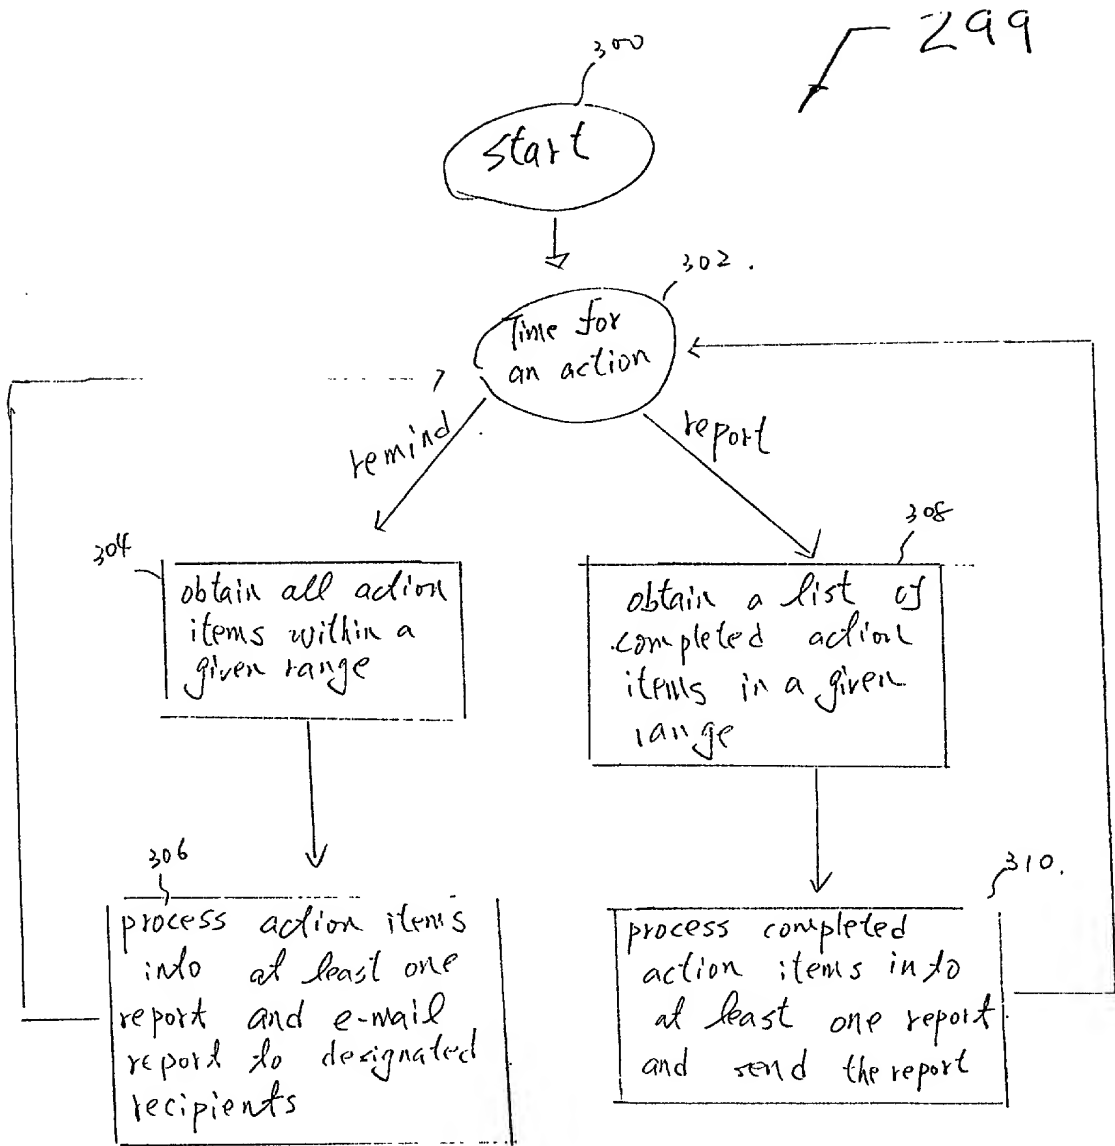 299
300
start
302.
Time for
an action
remind
report
304
obtain all action
items within a
given range
308
obtain a list of
completed action
items in a given
range
306
process action items
into at least one
report and e-mail
report to designated
recipients
310.
process completed
action items into
at least one report
and send the report